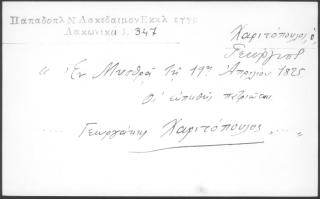 Παπαδοπλ Ν Λακεδαιμον Εκκλ εγγρ
Λακωνικα 1. 347
Χαριτόπουλος, ὁ
Γεώργιος
" Ἐν Μυσθρᾷ τῇ 19ῃ Ἀπριλίου 1825
Οἱ εὐπειθεῖς πατριῶται
Γεωργάκης Χαριτόπουλος, .. "